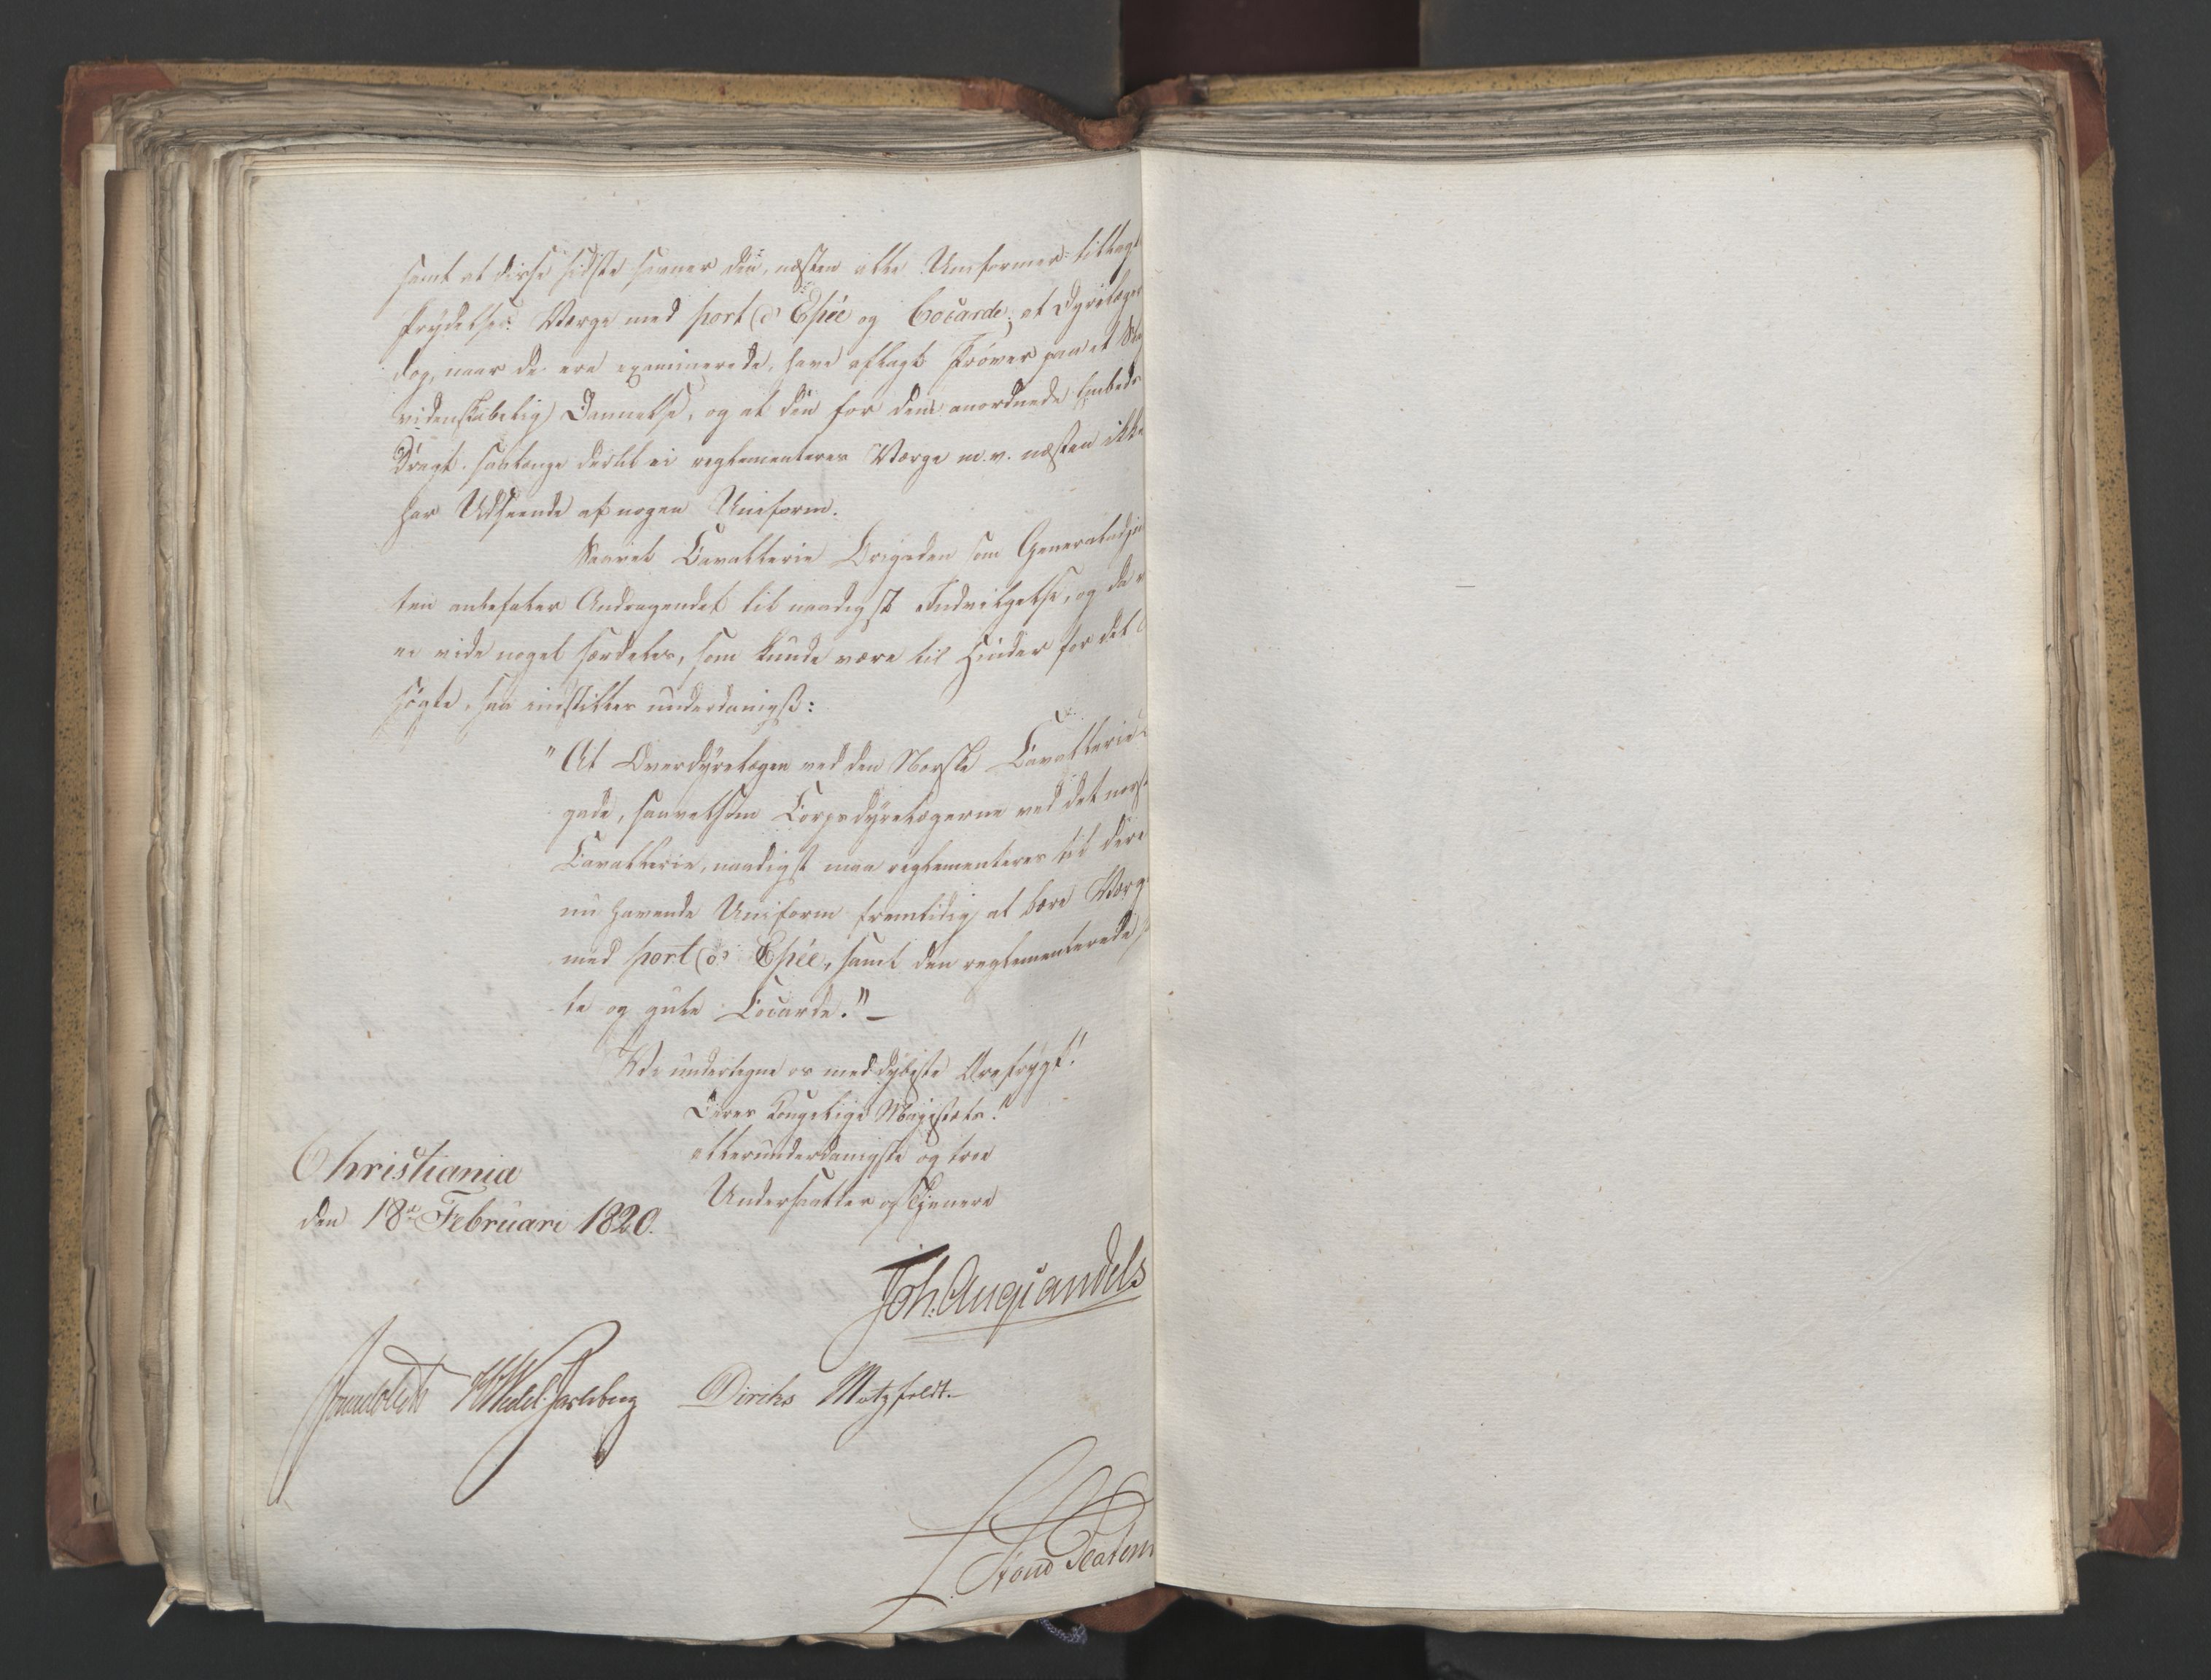 samt at disse sidste savner den, næsten alle Uniformer tillagt
prydelse: Værge med port d' Epée og Cocarde; at Dyrelæger
dog, naar de ere examinerede, have aflagt Prøver paa et
videnskabelig Dannelse, og at den for dem anordnede Embeds
Dragt, saalænge dertil ei reglementeres Værge m. v. næsten ikke
har Udseende af nogen Uniform.
Saavel Cavallerie Brigaden som Generaladju
ten anbefaler Andragendet til naadigst Indvilgelse, og da v
ei vide noget særdeles, som kunde være til Hinder for det
søgte, saa indstilles underdanigst:
"At Overdyrelægen ved den Norske Cavallerie
gade, saavelsom Corpsdyrelægerne ved det norske
Cavallerie, naadigst maa reglementeres til dere
nu havende Uniform fremtidig at bære Værge
med port d' Epée, samt den reglementerede
te og gule Cocarde." –
Vi undertegne os med dybeste Ærefrygt!
Deres Kongelige Majestæts!
allerunderdanigste og troe
Undersaatter og Tjenere
Christiania
den 18de Februari 1820.
Joh. Aug: Sandels
Sommerhielm HWedel-Jarlsberg Diriks Motzfeldt.